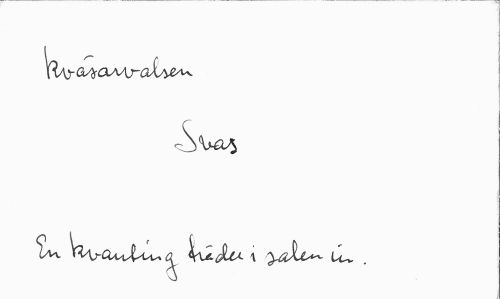 Kväsarvalsen
Svas
En kvanting träder i salen in.